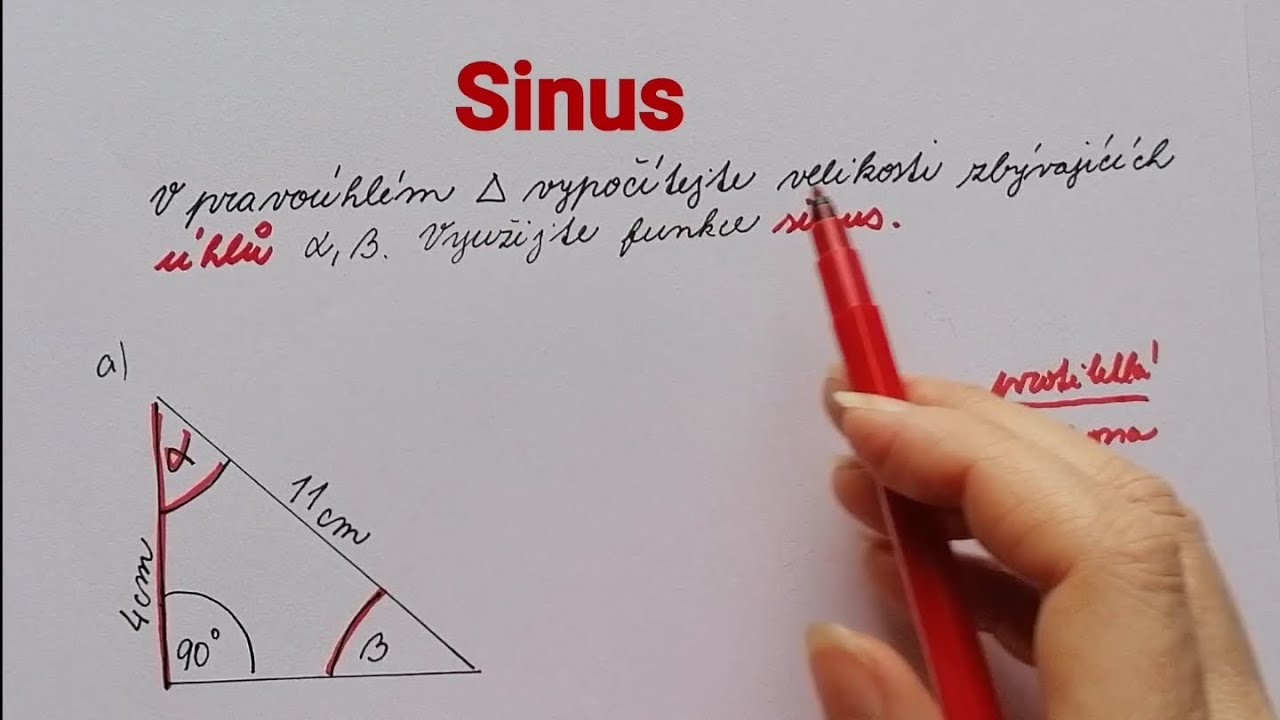 Sinus
V pravoúhlém Δ vypočítejte velikosti zbývajících
úhlů α, β. Využijte funkce sinus.
a)
protilehlá
α
11 cm
4 cm
90°
β